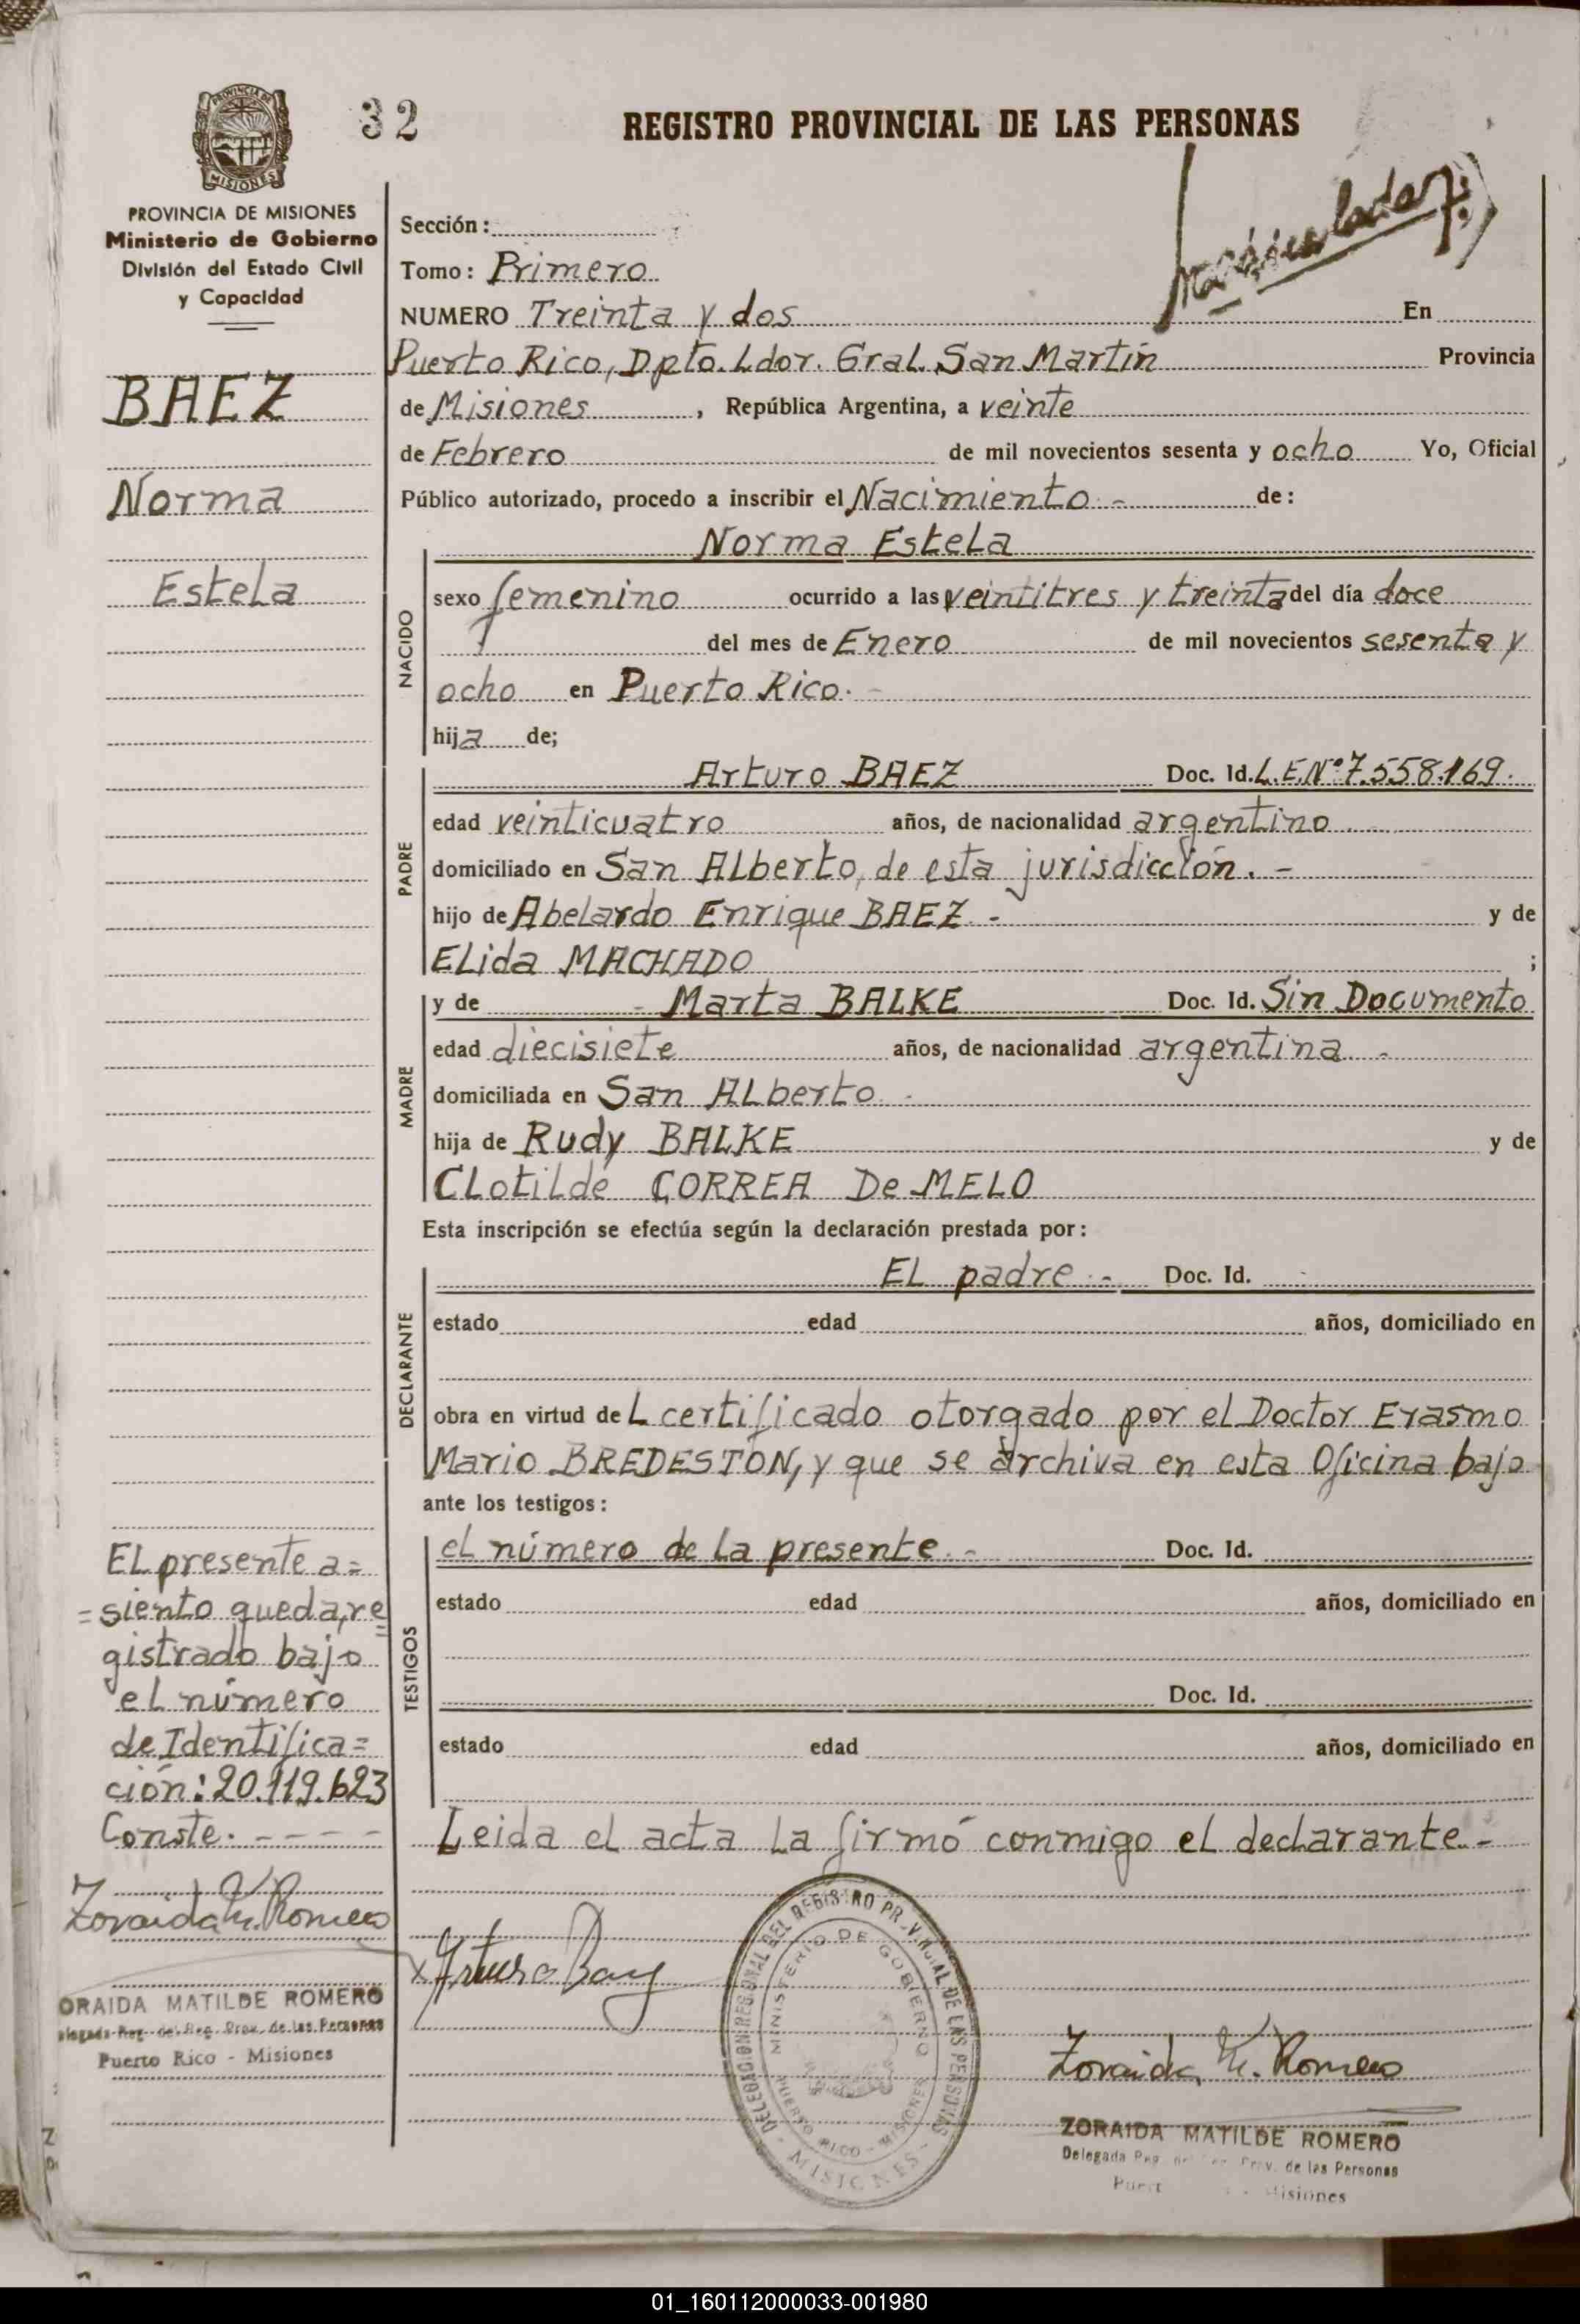 32
REGISTRO PROVINCIAL DE LAS PERSONAS
PROVINCIA DE
MISIONES
PROVINCIA DE MISIONES
Ministerio de Gobierno
División del Estado Civil
y Capacidad
BAEZ
Norma
Estela
Sección:
Tomo: Primero
NUMERO Treinta y dos En
Puerto Rico, Dpto. Ldor. Gral. San Martín Provincia
de Misiones, República Argentina, a veinte
de Febrero de mil novecientos sesenta y ocho Yo, Oficial
Público autorizado, procedo a inscribir el Nacimiento.- de:
Norma Estela
NACIDO
sexo femenino ocurrido a las veintitres y treinta del día doce
del mes de Enero de mil novecientos sesenta y
ocho en Puerto Rico.-
hija de;
PADRE
Arturo BAEZ Doc. Id. L.E.Nº 7.558.169.
edad veinticuatro años, de nacionalidad argentino
domiciliado en San ALberto, de esta jurisdicción.-
hijo de Abelardo Enrique BAEZ.- y de
ELida MACHADO ;
MADRE
y de - Marta BALKE Doc. Id. Sin Documento
edad diecisiete años, de nacionalidad argentina.-
domiciliada en San ALberto.-
hija de Rudy BALKE y de
CLotiLde CORREA De MELO
Esta inscripción se efectúa según la declaración prestada por:
DECLARANTE
EL padre.- Doc. Id.
estado edad años, domiciliado en
obra en virtud de L certificado otorgado por el Doctor Erasmo
Mario BREDESTON, y que se archiva en esta Oficina bajo
ante los testigos:
TESTIGOS
el número de la presente.- Doc. Id.
estado edad años, domiciliado en
Doc. Id.
estado edad años, domiciliado en
Leida el acta La firmó conmigo el declarante.-
EL presente a=
=siento queda, re=
gistrado bajo
eL número
de Identifica=
ción: 20.119.623
Conste.----
Zoraida M. Romero
ORAIDA MATILDE ROMERO
elegada Reg. del Reg. Prov. de las Personas
Puerto Rico - Misiones
x Arturo Baez
DELEGACION REGIONAL DEL REGISTRO PROVINCIAL DE LAS PERSONAS
MINISTERIO DE GOBIERNO
PUERTO RICO - MISIONES
- MISIONES -
Zoraida M. Romero
ZORAIDA MATILDE ROMERO
Delegada Prov. de las Personas
Misiones
01_160112000033-001980